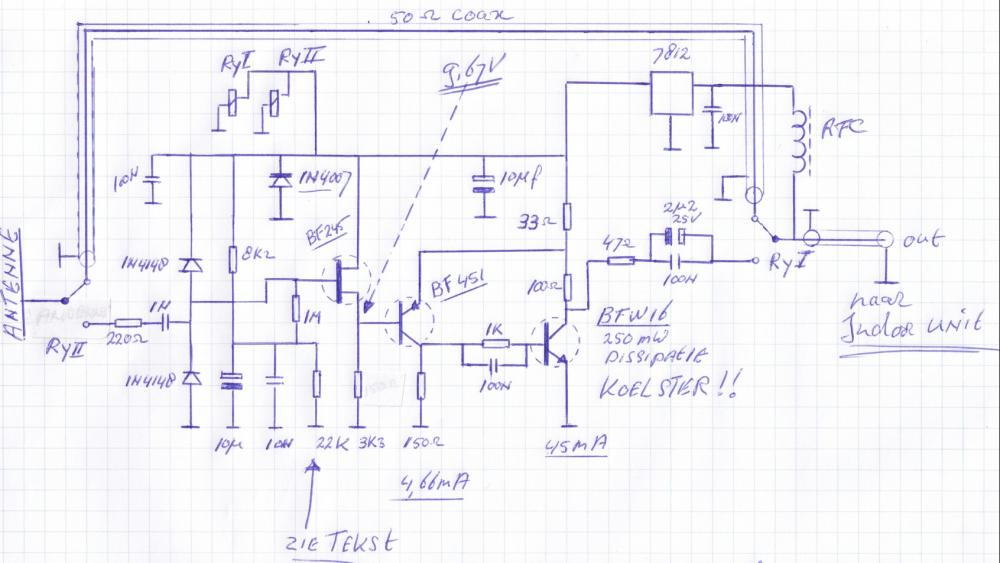 50Ω COAX
RyI
RyII
9,67V
7812
100N
RFC
100N
1N4007
10µf
BF245
33Ω
2µ2
25V
47Ω
out
ANTENNE
1N4148
8K2
BF451
100Ω
100N
RyI
1N
1M
BFW16
naar
Indoor UNIT
220Ω
RyII
1K
250 mW
DISSIPATIE
1N4148
100N
KOELSTER!!
10µ
10N
22K
3K3
150Ω
45mA
4,66mA
ZIE TEKST